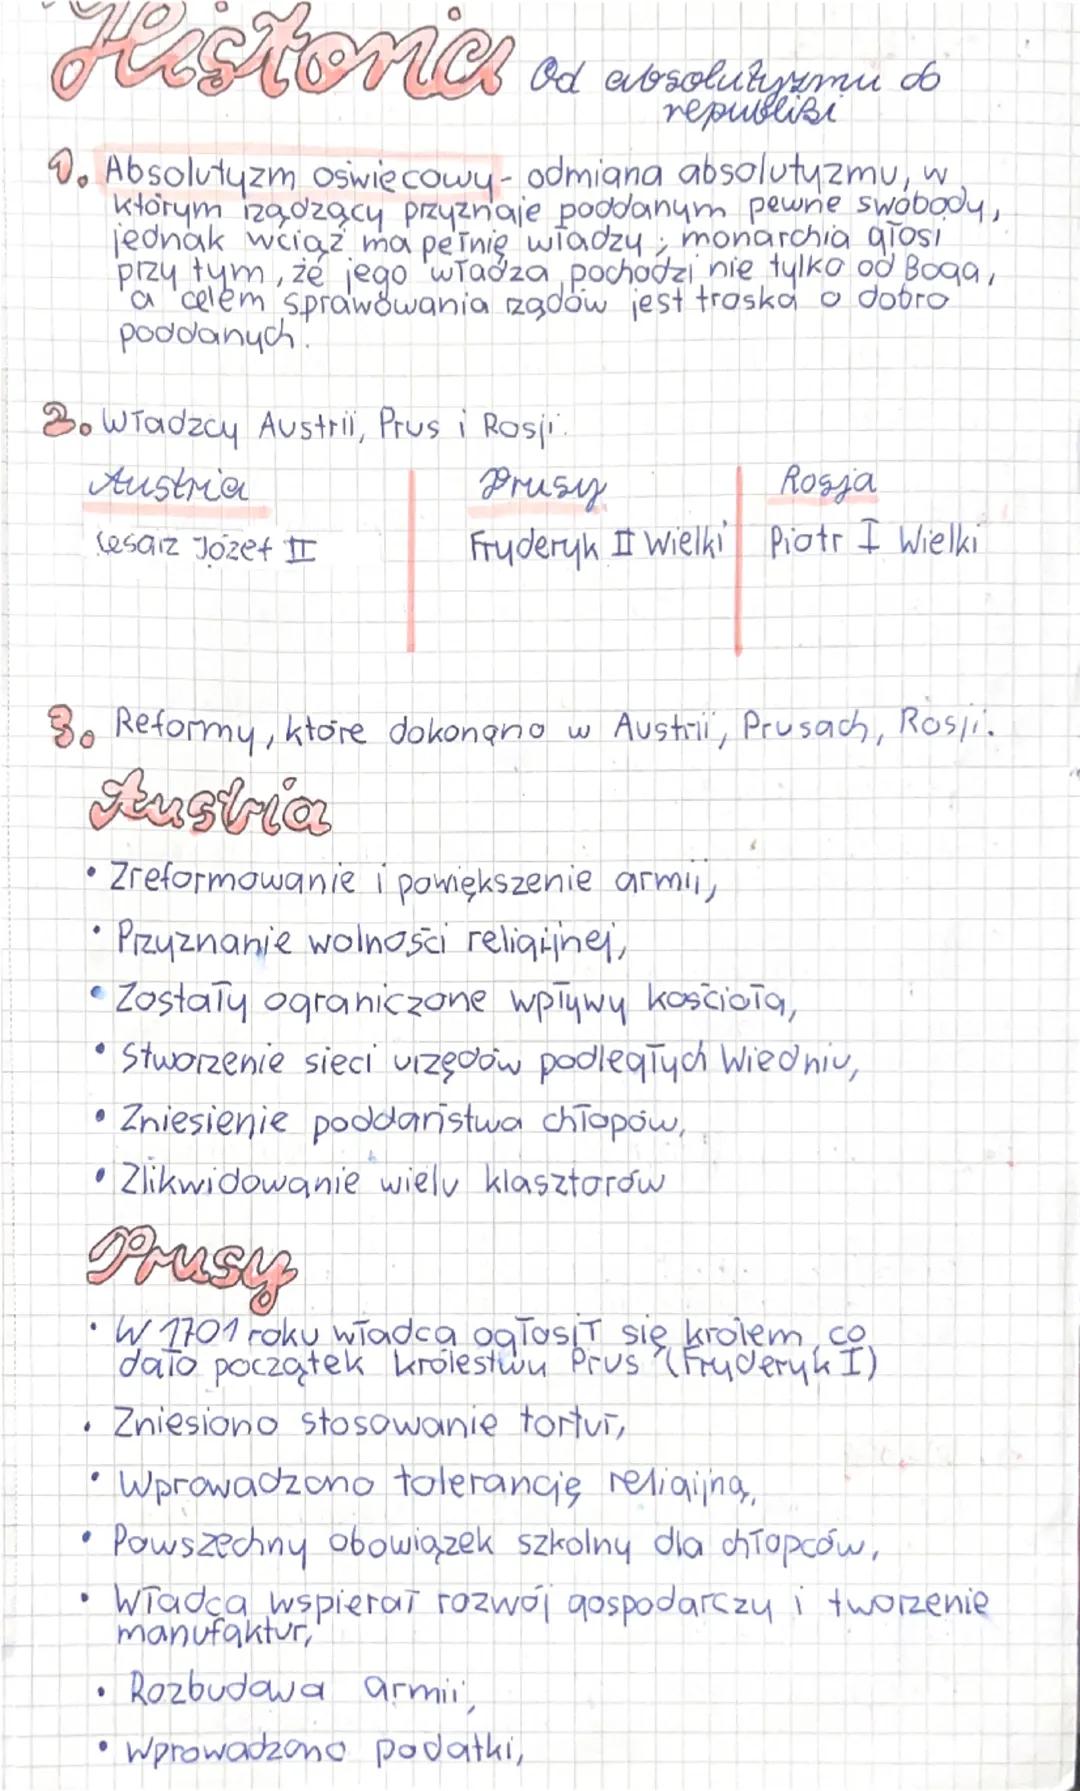 Historia Od absolutyzmu do
republiki
1. Absolutyzm oświecowy - odmiana absolutyzmu, w
którym rządzący przyznaje poddanym pewne swobody,
jednak wciąż ma pełnię władzy; monarchia głosi
przy tym, że jego władza pochodzi nie tylko od Boga,
a celem sprawowania rządów jest troska o dobro
poddanych.
2. Władzcy Austrii, Prus i Rosji.
Austria Prusy Rosja
cesarz Józef II Fryderyk II Wielki Piotr I Wielki
3. Reformy, które dokonano w Austrii, Prusach, Rosji.
Austria
• Zreformowanie i powiększenie armii,
• Przyznanie wolności religijnej,
• Zostały ograniczone wpływy kościoła,
• Stworzenie sieci urzędów podległych Wiedniu,
• Zniesienie poddaństwa chłopów,
• Zlikwidowanie wielu klasztorów
Prusy
• W 1701 roku władca ogłosił się królem co
dało początek królestwu Prus (Fryderyk I)
• Zniesiono stosowanie tortur,
• Wprowadzono tolerancję religijną,
• Powszechny obowiązek szkolny dla chłopców,
• Władca wspierał rozwój gospodarczy i tworzenie
manufaktur,
• Rozbudowa armii,
• Wprowadzono podatki,